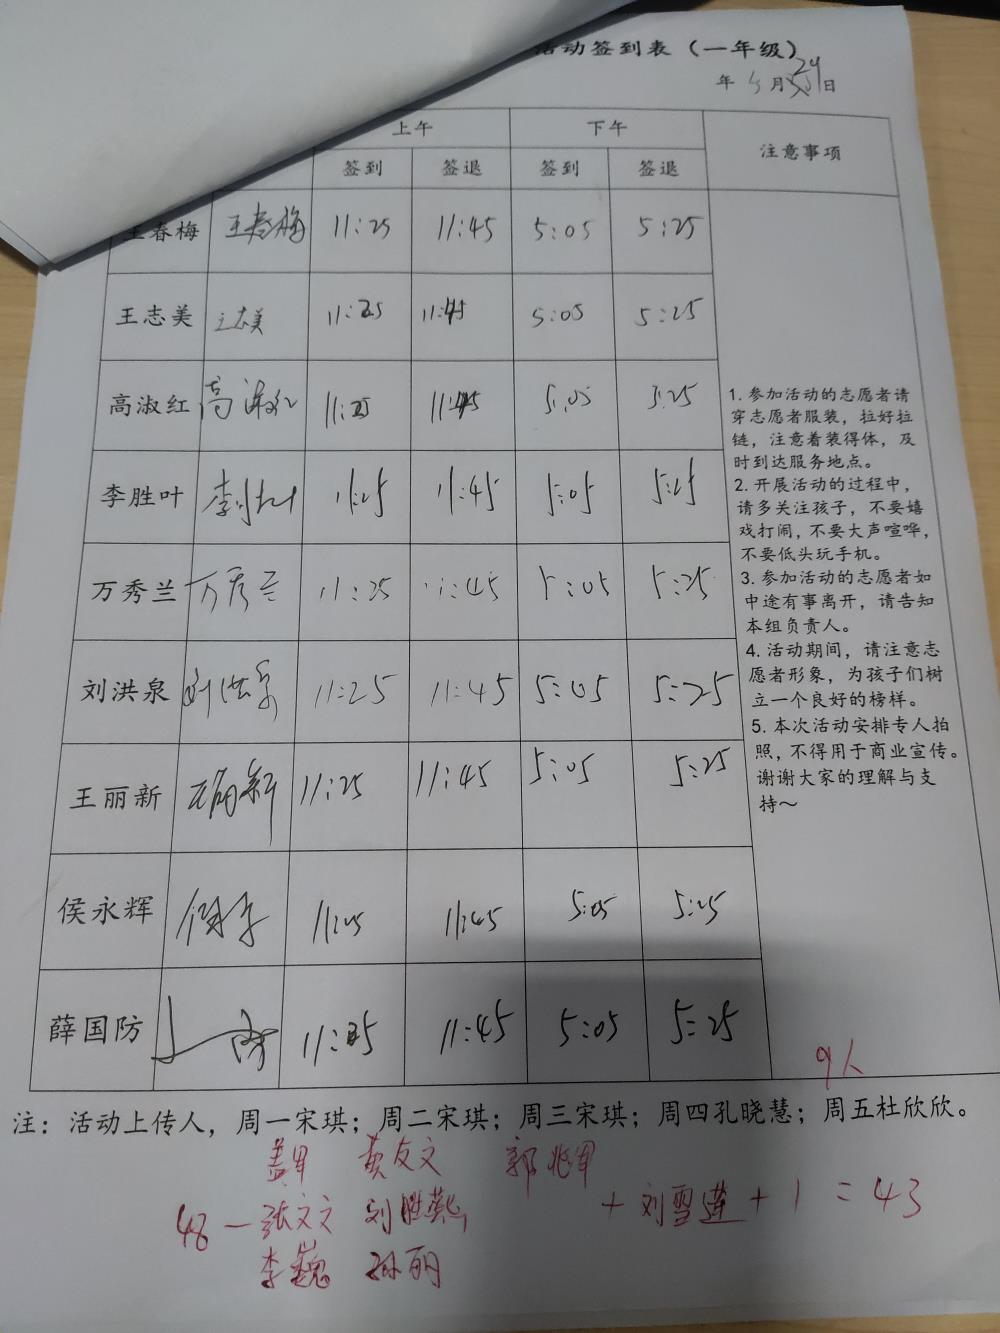 活动签到表（一年级）
年 5月29日
上午 下午 注意事项
签到 签退 签到 签退
王春梅 王春梅 11:25 11:45 5:05 5:25
王志美 王志美 11:25 11:45 5:05 5:25
高淑红 高淑红 11:25 11:45 5:05 5:25
李胜叶 李胜叶 11:25 11:45 5:05 5:25
万秀兰 万秀兰 11:25 11:45 5:05 5:25
刘洪泉 刘洪泉 11:25 11:45 5:05 5:25
王丽新 王丽新 11:25 11:45 5:05 5:25
侯永辉 11:25 11:45 5:05 5:25
薛国防 11:25 11:45 5:05 5:25
1. 参加活动的志愿者请
穿志愿者服装，拉好拉
链，注意着装得体，及
时到达服务地点。
2. 开展活动的过程中，
请多关注孩子，不要嬉
戏打闹，不要大声喧哗，
不要低头玩手机。
3. 参加活动的志愿者如
中途有事离开，请告知
本组负责人。
4. 活动期间，请注意志
愿者形象，为孩子们树
立一个良好的榜样。
5. 本次活动安排专人拍
照，不得用于商业宣传。
谢谢大家的理解与支
持～
9人
注：活动上传人，周一宋琪；周二宋琪；周三宋琪；周四孔晓慧；周五杜欣欣。
黄友文 郭兆军
48 — 张文文 刘胜燕 + 刘雪莲 + 1 = 43
李巍 孙丽